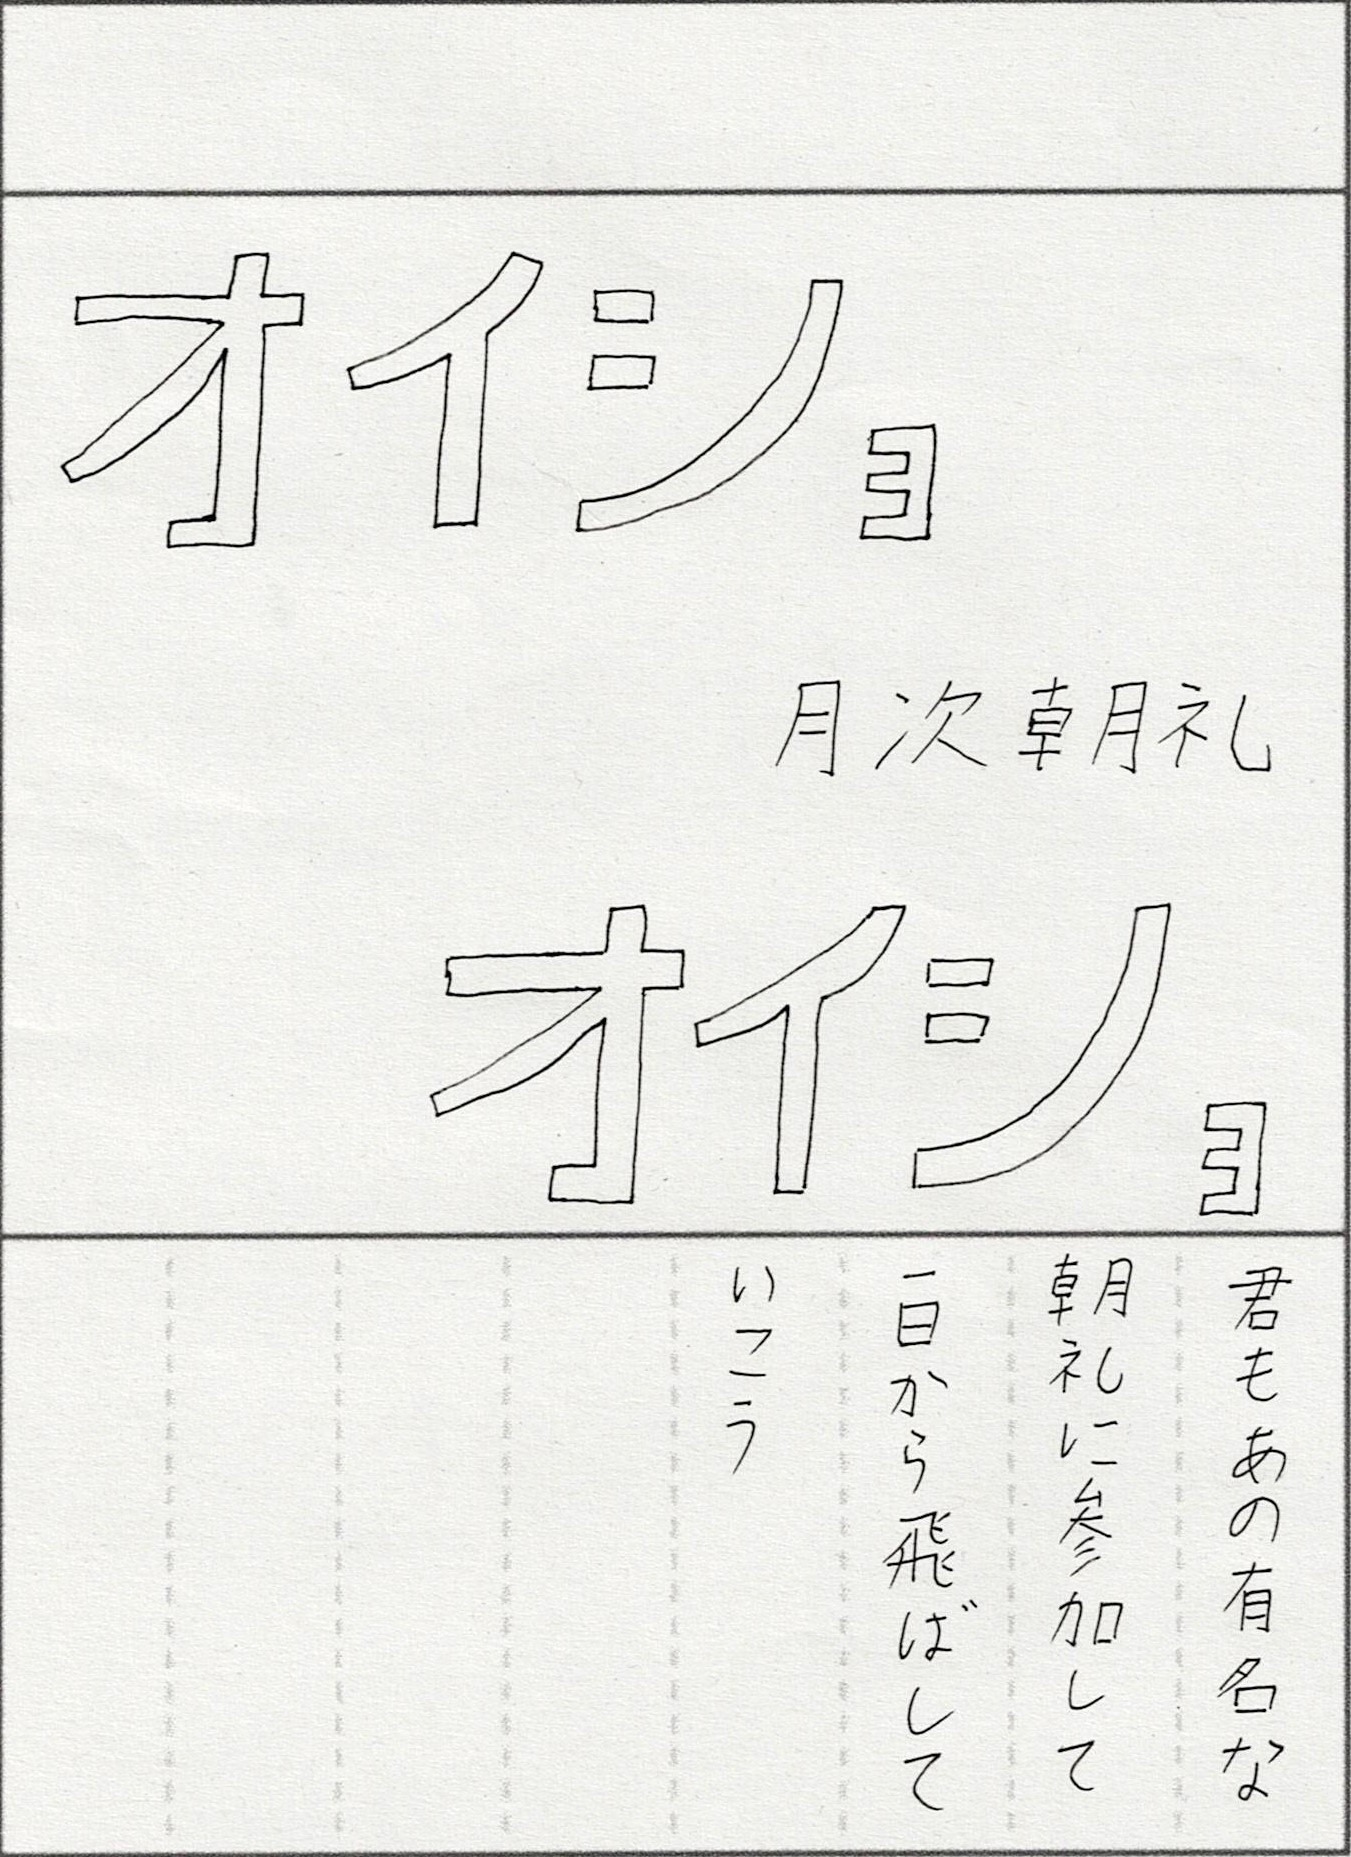 オイショ
月次朝礼
オイショ
君もあの有名な
朝礼に参加して
一日から飛ばして
いこう